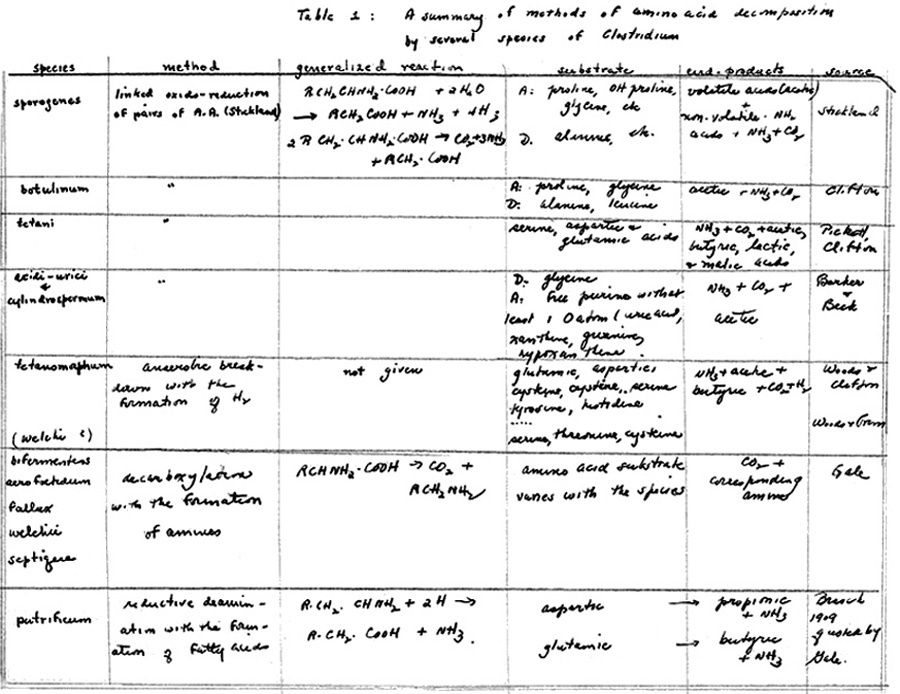 Table 1 : A summary of methods of amino acid decomposition
by several species of Clostridium
species method generalized reaction substrate end-products source
sporogenes
linked oxido-reduction
of pairs of A.A. (Stickland)
RCH₂CHNH₂·COOH + 2H₂O
→ RCH₂COOH + NH₃ + 4H
2 R CH₂·CHNH₂·COOH → CO₂+3NH₃
+ RCH₂·COOH
A: proline, OH proline,
glycine, etc
D. alanine, etc.
volatile acids (acetic)
+
non-volatile·NH₂
acids + NH₃+CO₂
Stickland
botulinum
"
A: proline, glycine
D: alanine, leucine
acetic + NH₃+CO₂
Clifton
tetani
"
serine, aspartic &
glutamic acids
NH₃+CO₂+acetic,
butyric, lactic,
& malic acids
Pickett,
Clifton
acidi-urici
&
cylindrosporum
"
D. glycine
A: free purine with at
least 1 O atom (uric acid,
xanthine, guanine,
hypoxanthine.
NH₃ + CO₂ +
acetic
Barker
&
Beck
tetanomorphum
(welchii ?)
anaerobic break-
down with the
formation of H₂
not given
glutamic, aspartic,
cysteine, cystine, serine
tyrosine, histidine
.....
serine, threonine, cysteine
NH₃+acetic +
butyric +CO₂+H₂
Woods &
Clifton
Woods &
bifermentens
aerofoetidum
fallax
welchii
septique
decarboxylation
with the formation
of amines
RCHNH₂·COOH → CO₂ +
RCH₂NH₂
amino acid substrate
varies with the species
CO₂ +
corresponding
amine
Gale
putrificum
reductive deamin-
ation with the form-
ation of fatty acids
R·CH₂· CHNH₂ + 2H →
R·CH₂· COOH + NH₃.
aspartic → propionic
+ NH₃
glutamic → butyric
+ NH₃
1909
quoted by
Gale.